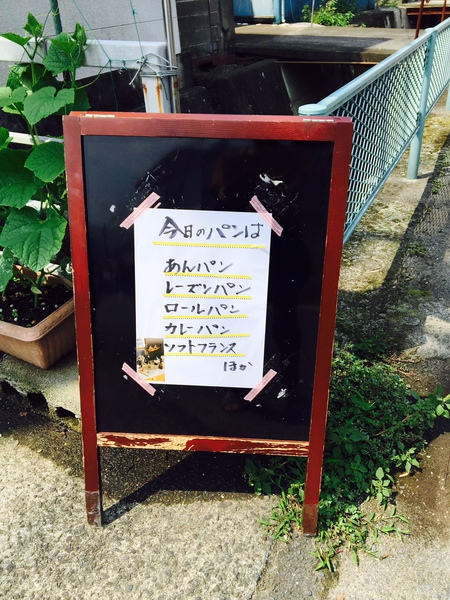 今日のパンは
あんパン
レーズンパン
ロールパン
カレーパン
ソフトフランス
ほか